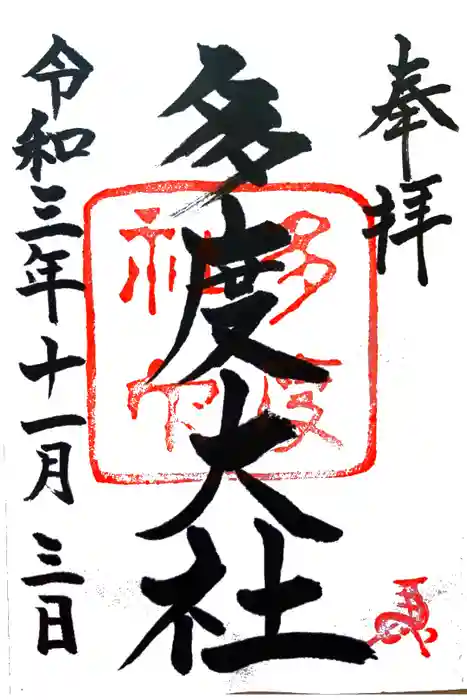 奉拝
多度大社
令和三年十一月三日
多度
神印